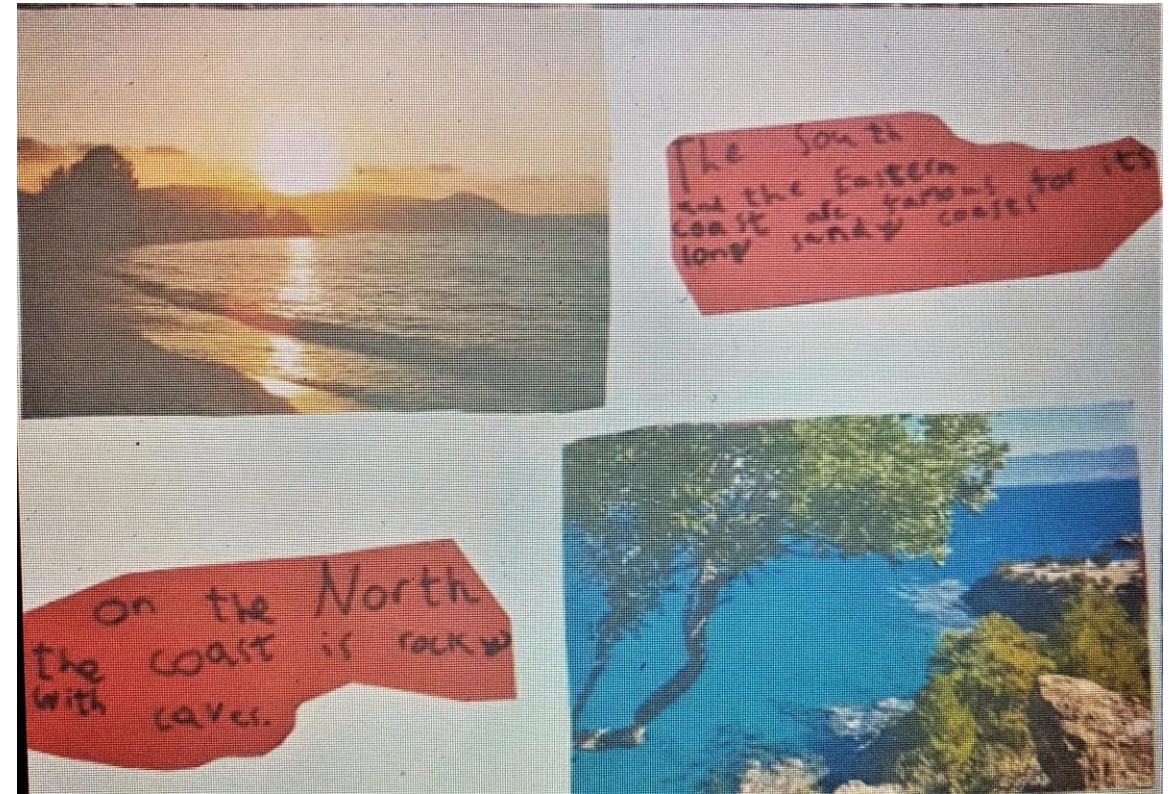 The South
and the Eastern
coast are famous for its
long sandy coasts
On the North
the coast is rocky
with caves.